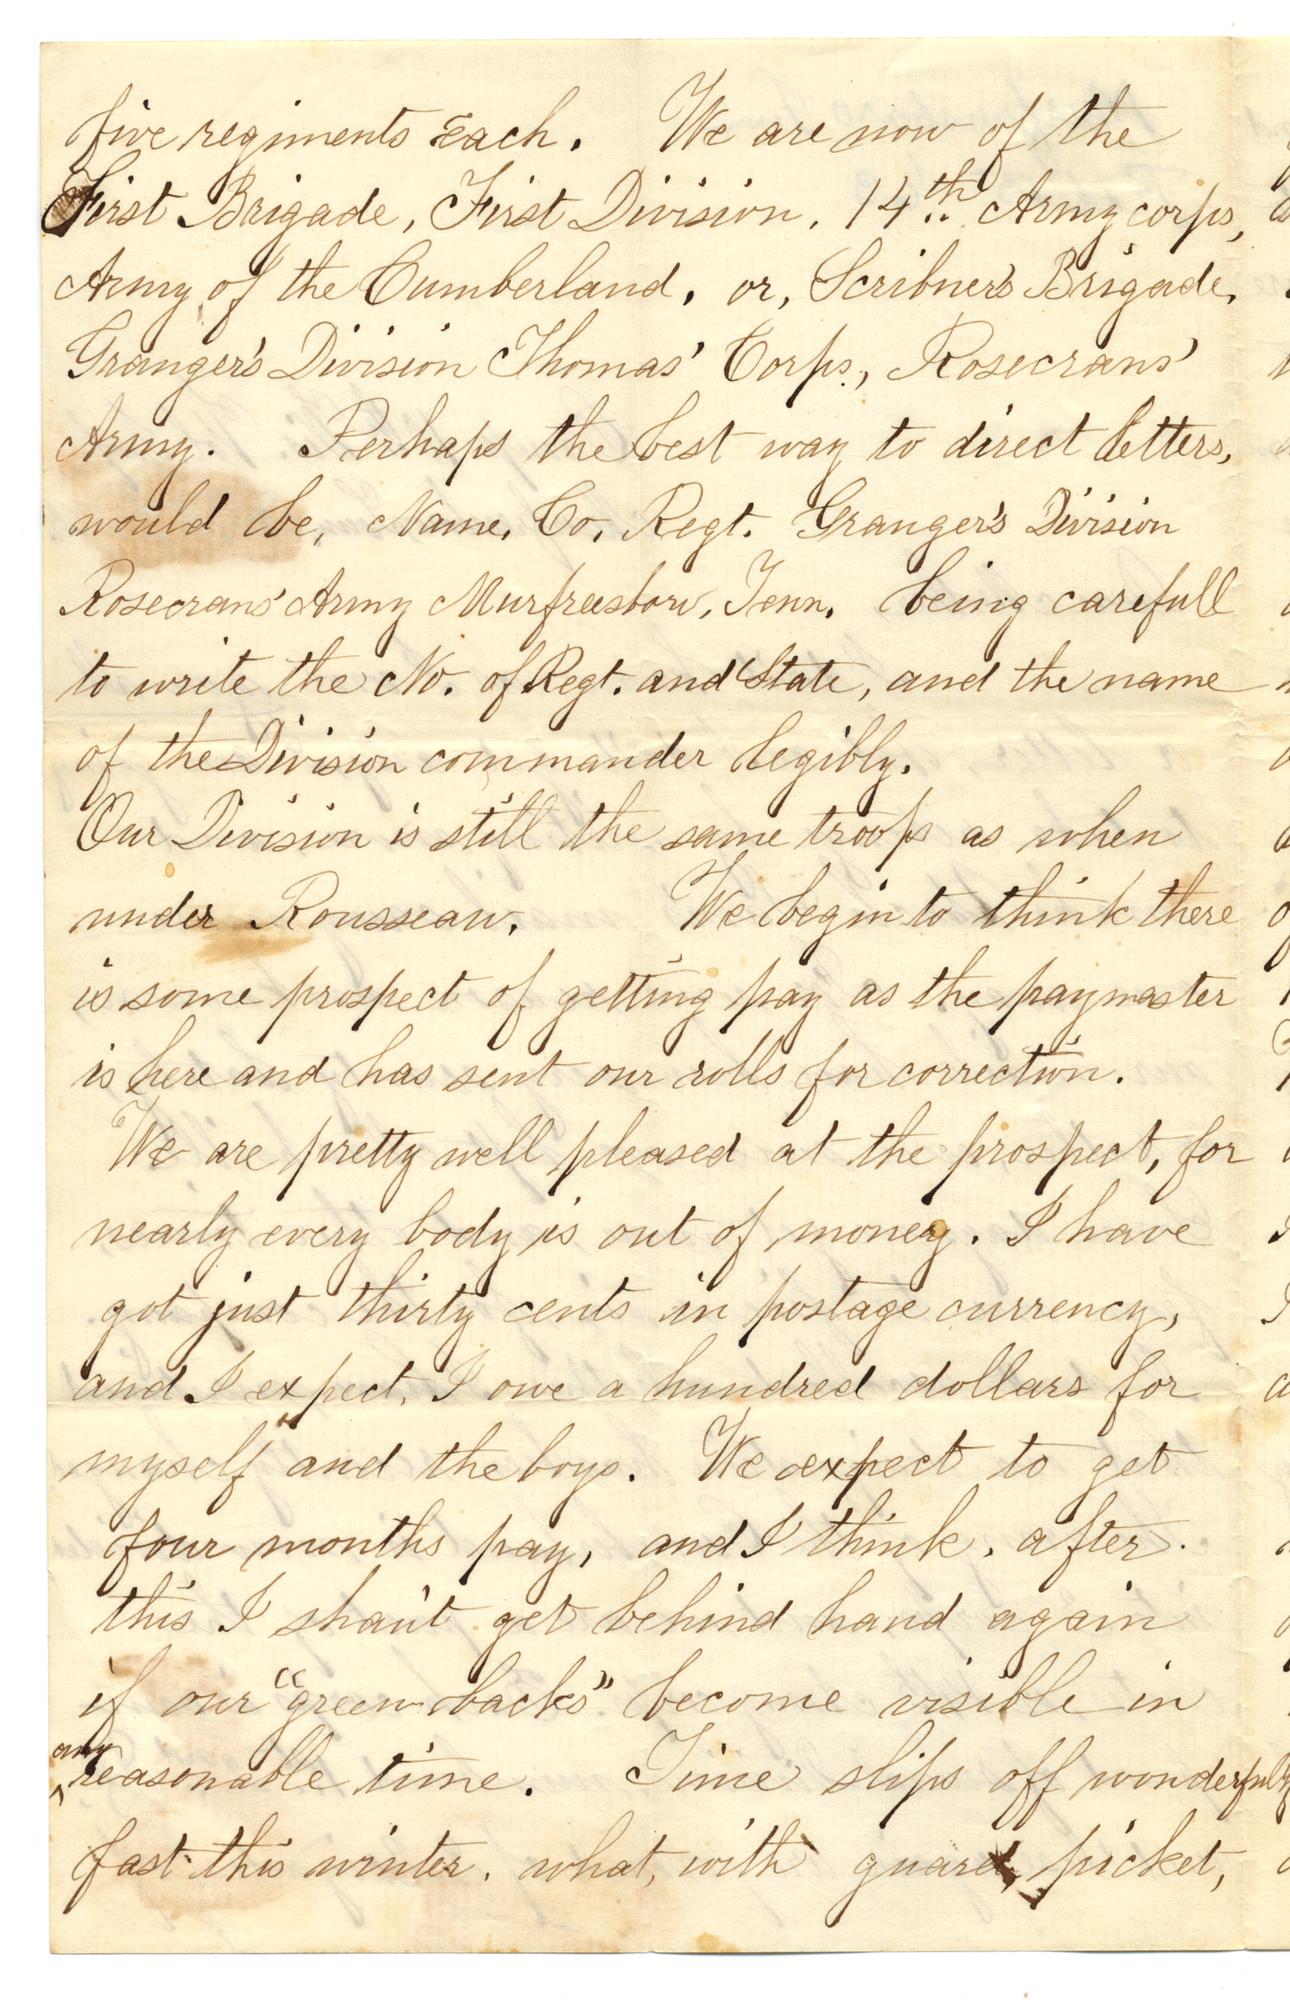 five regiments Each. We are now of the
First Brigade, First Division, 14th Army corps,
Army of the Cumberland, or, Scribner's Brigade,
Granger's Division Thomas' Corps, Rosecrans'
Army. Perhaps the best way to direct letters,
would be, Name, Co, Regt. Granger's Division
Rosecrans' Army Murfreesboro, Tenn. being carefull
to write the No. of Regt. and State, and the name
of the Division commander legibly.
Our Division is still the same troops as when
under Rousseau. We begin to think there
is some prospect of getting pay as the paymaster
is here and has sent our rolls for correction.
We are pretty well pleased at the prospect, for
nearly every body is out of money. I have
got just thirty cents in postage currency,
and I expect, I owe a hundred dollars for
myself and the boys. We expect to get
four months pay, and I think, after
this I shan't get behind hand again
if our "green backs" become visible in
any reasonable time. Time slips off wonderfully
fast this winter, what, with guard, picket,